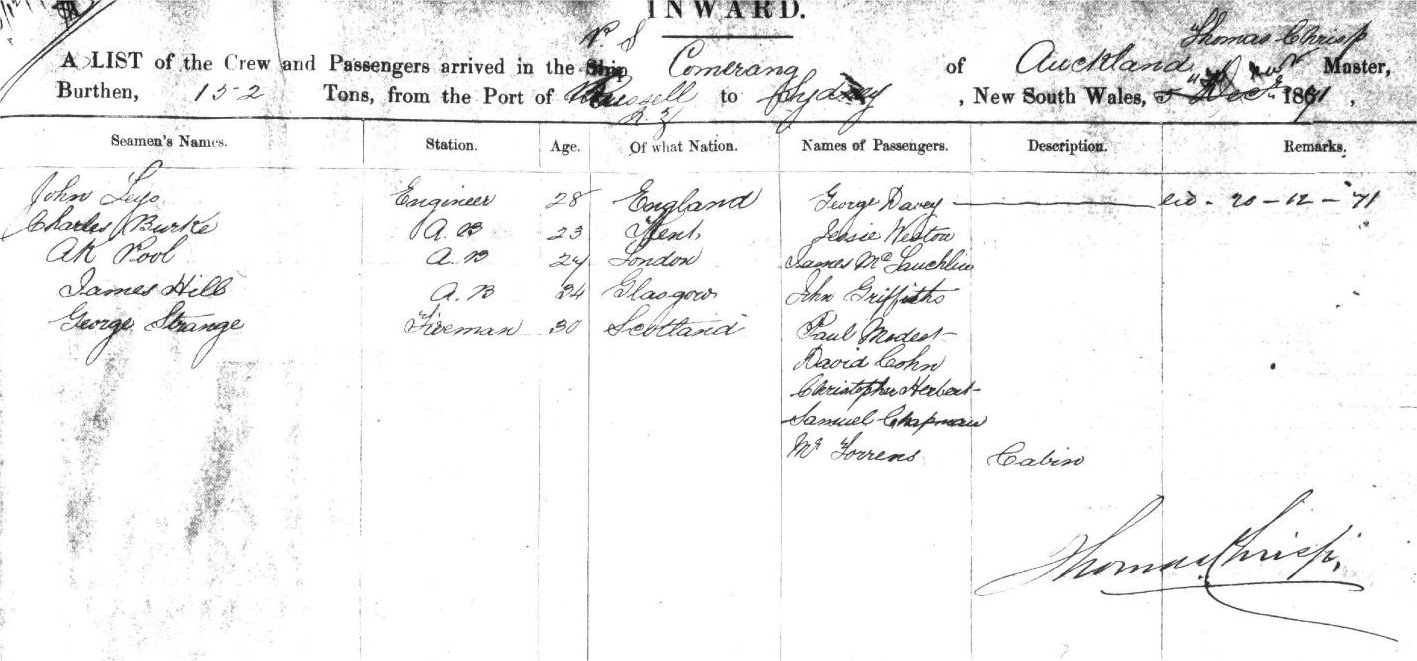 INWARD.
P S Thomas Chrisp
A LIST of the Crew and Passengers arrived in the Ship Comerang of Auckland Master,
Burthen, 152 Tons, from the Port of Russell to Sydney , New South Wales, Dec 1871,
N.Z
Seamen's Names. Station. Age. Of what Nation. Names of Passengers. Description. Remarks.
John Engineer 28 England George Davey 20-12-71
Charles Burke A.B 23 Kent Jessie Weston
AK Pool A.B 24 London James McLauchlin
James Hill A.B 34 Glasgow John Griffiths
George Strange Fireman 30 Scotland Paul Modest
David Cohn
Christopher Herbert
Samuel Chapman
Mr Torrens Cabin
Thomas Chrisp